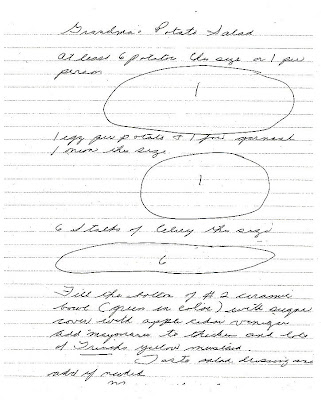 Grandma's Potato Salad
At least 6 potatoes this size or 1 per
person
1
1 egg per potato + 1 for garnish
1 onion this size
1
6 stalks of Celery this size
6
Fill the bottom of #2 ceramic
bowl (green in color) with sugar
cover with apple cider vinegar
add mayonaise to thicken and lots
of French's yellow mustard
Taste salad dressing and
add if needed